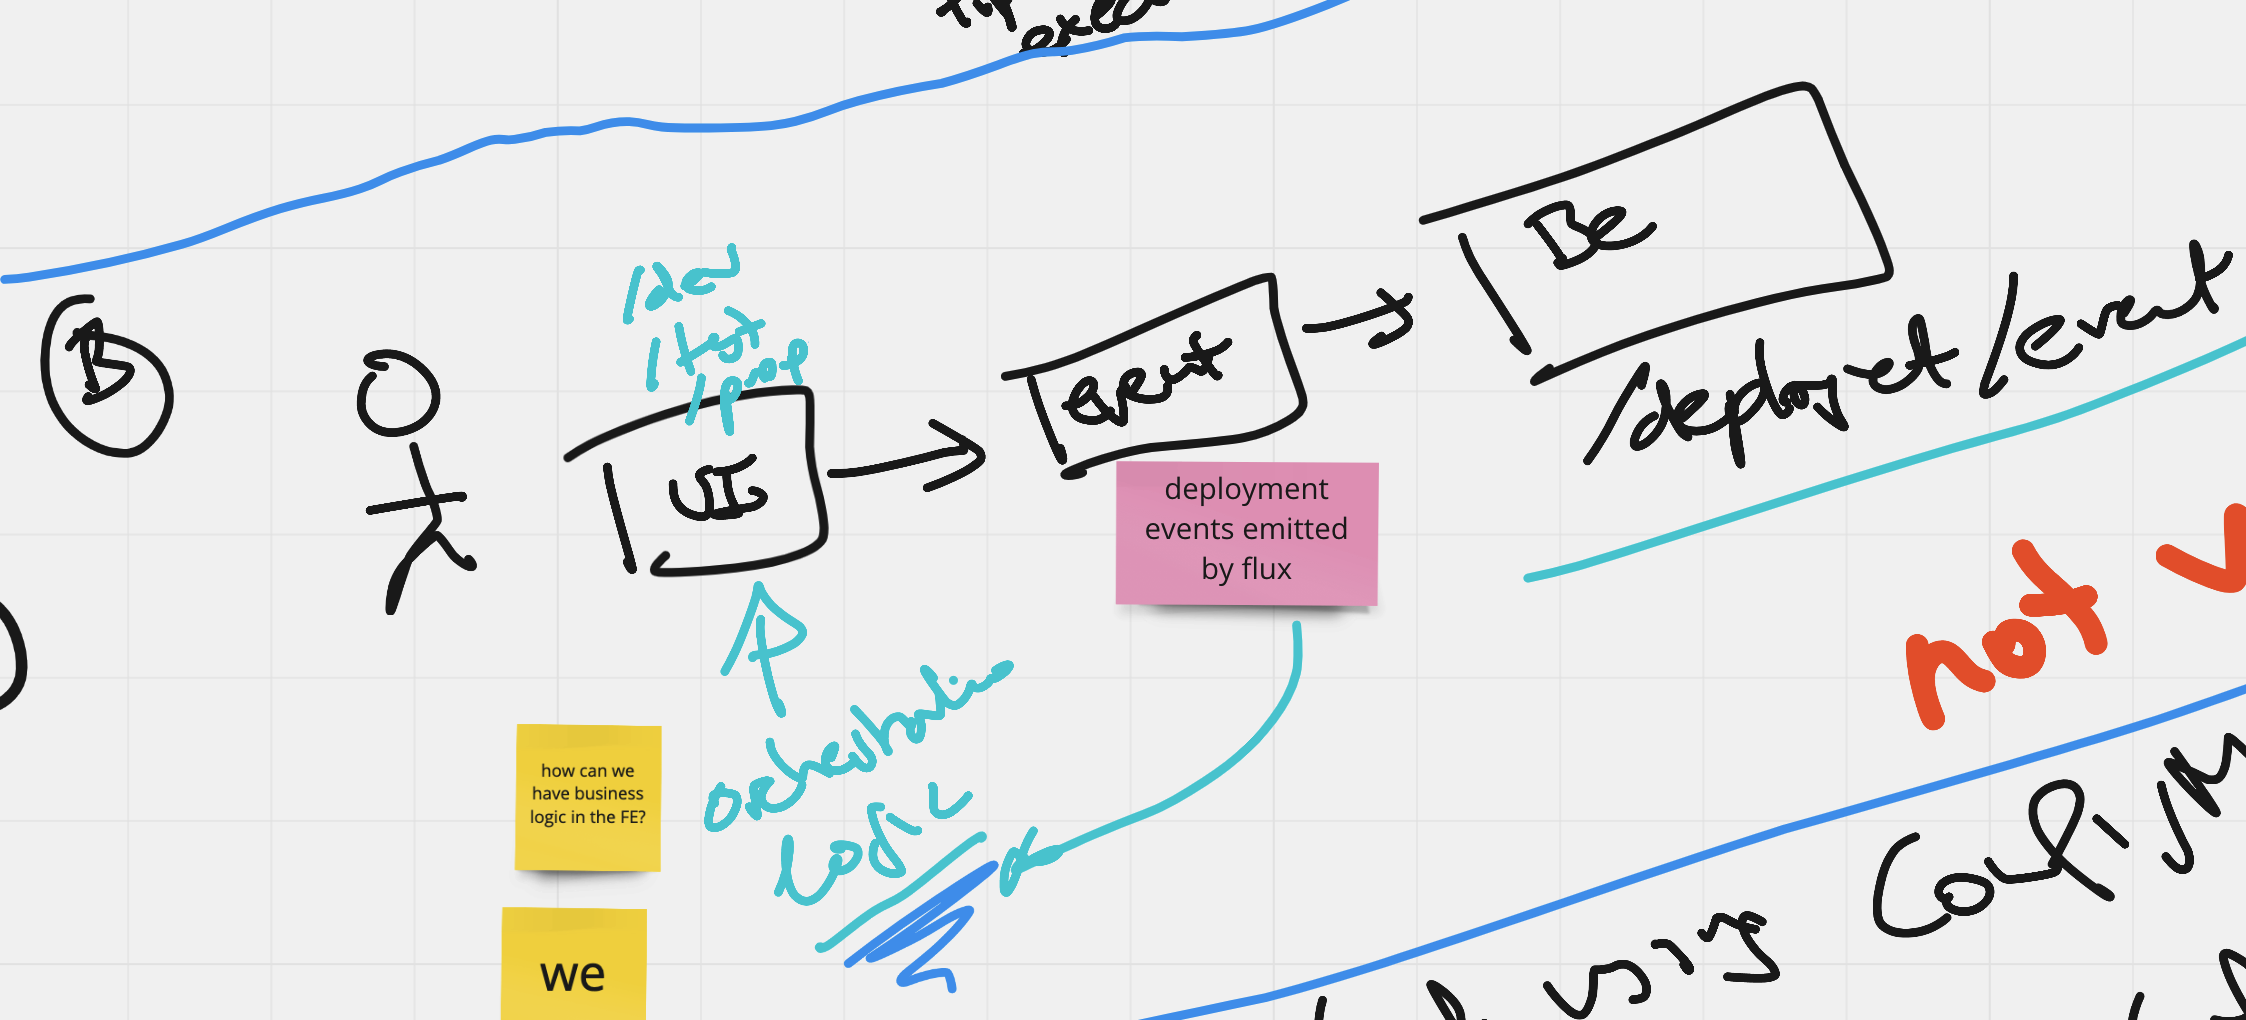 B
/dev
/test
/prod
UI
agent
Be
/deployet/event
deployment
events emitted
by flux
not
orchestration
Logic
how can we
have business
logic in the FE?
we
using